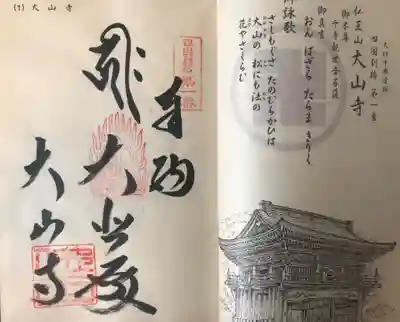 四国別格 第一番
仏王山 大山寺
御本尊
千手観世音菩薩
御真言
おん ばざら たらま きりく
御詠歌
さしもぐさ たのむちかひは
大山の 松にも法の
花やさくらむ
(1) 大山寺
四国別格第一番
奉納
大悲殿
大山寺